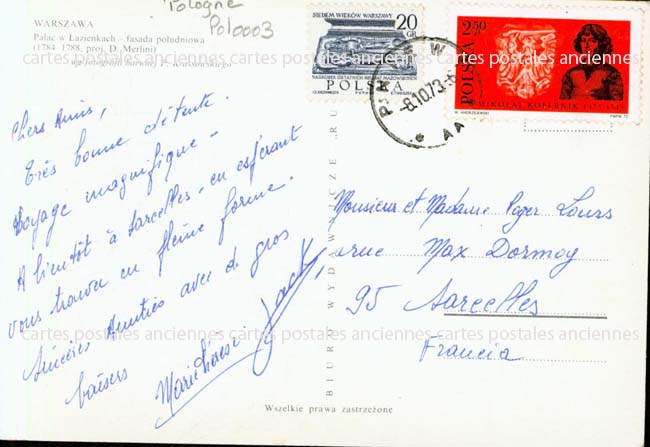 Pologne
Pol0003
WARSZAWA
Pałac w Łazienkach - fasada południowa
(1784-1788, proj. D. Merlini)
Chers Amis,
Très bonne détente.
Voyage magnifique -
A bientôt à Sarcelles, en espérant
vous trouver en pleine forme.
Sincères Amitiés avec de gros
baisers
Marithérèse Jacky
BIURO WYDAWNICZE „RU
Wszelkie prawa zastrzeżone
SIEDEM WIEKÓW WARSZAWY
20
GR
NAGROBEK OSTATNICH KSIĄŻĄT MAZOWIECKICH
POLSKA
-8.10.73-6
AA
POLSKA 2,50
MIKOŁAJ KOPERNIK 1473-1543
Monsieur et Madame Roger Lours
rue Max Dormoy
95 Sarcelles
Francia
cartes postales anciennes cartes postales anciennes cartes postales anciennes
cartes postales anciennes cartes postales anciennes cartes postales anciennes